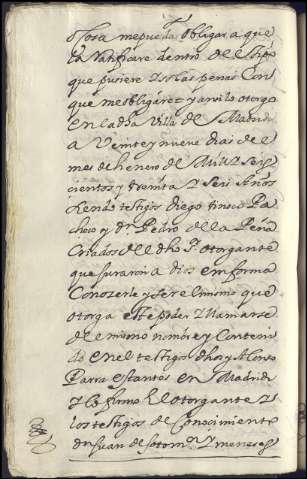 otora me pueda obligar a que
la Ratificare dentro del tpo
que pusiere y so las penas con
que me obligare = y ansi lo otorgo
en la dha Villa de Madrid
a Veinte y nueve dias del
mes de henero de Mill y seis
cientos y treinta y seis Años
siendo testigos diego tinoco Pa
checo y don Pedro de la Peña
criados del dho sr otorgante
que juraron a dios en forma
Conozerle y ser el mismo que
otorga este poder y llamarse
del mismo nombre y Conteni
do en el testigos dhos y Alonso
Parra estantes en Madrid
y lo firmo el otorgante y
los testigos de Conocimiento
don Juan de sotomor y meneses